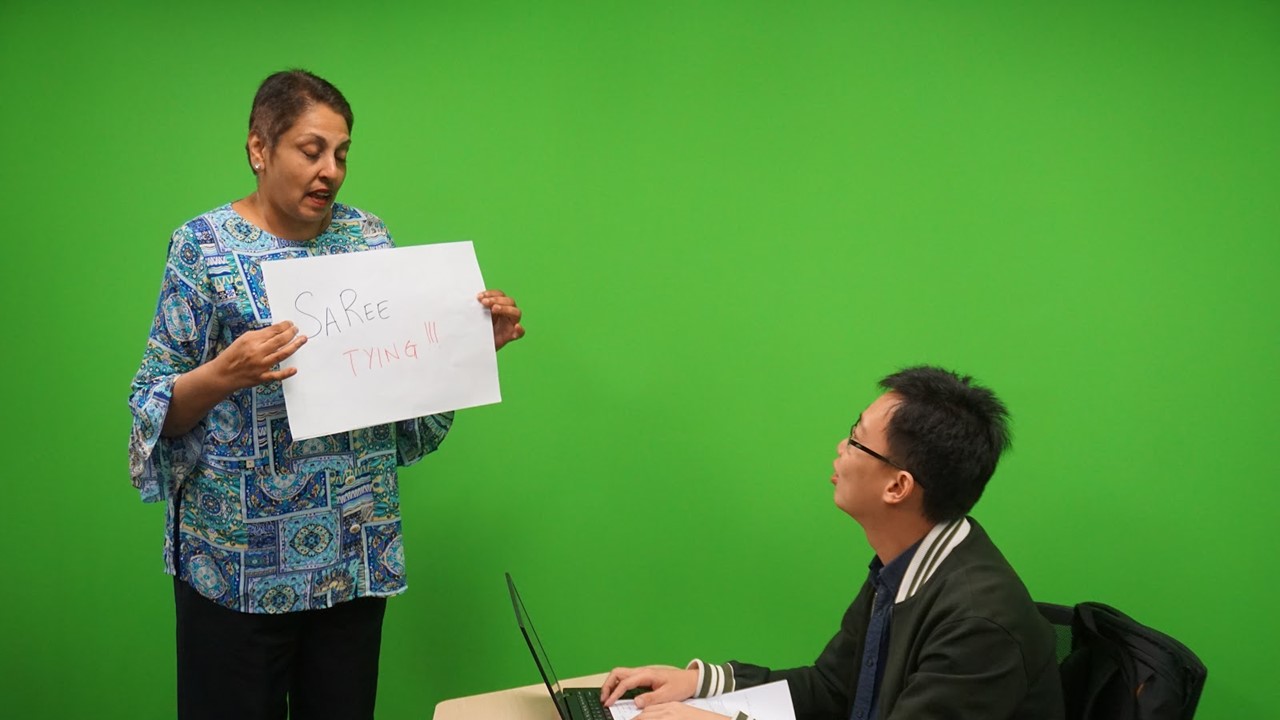 SaRee
TYING!!!